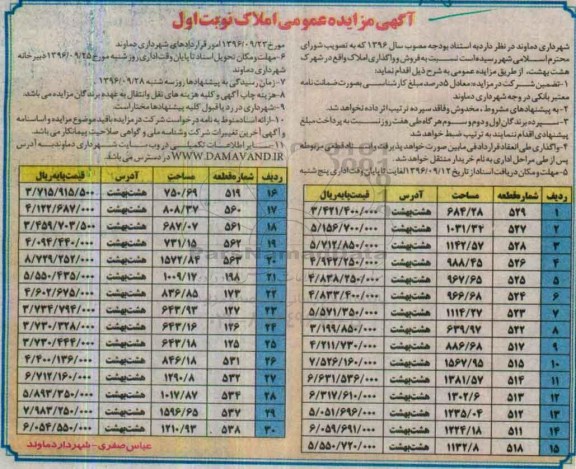 آگهی مزایده عمومی املاک نوبت اول
شهرداری دماوند در نظر دارد به استناد بودجه مصوب سال ۱۳۹۶ که به تصویب شورای
محترم اسلامی شهر رسیده است نسبت به فروش و واگذاری املاک واقع در شهرک
هشت بهشت، از طریق مزایده عمومی به شرح ذیل اقدام نماید:
۱- تضمین شرکت در مزایده: معادل ۵ درصد مبلغ کارشناسی بصورت ضمانت نامه
معتبر بانکی و وجه شهرداری دماوند
۲- به پیشنهادهای مشروط، مخدوش و فاقد سپرده ترتیب اثر داده نخواهد شد.
۳- سپرده برندگان اول و دوم و سوم هر گاه طی هفت روز نسبت به پرداخت مبلغ
پیشنهادی اقدام ننمایند به ترتیب ضبط خواهد شد.
۴- واگذاری طی انعقاد قرارداد فی مابین صورت خواهد پذیرفت و سند قطعی مربوطه
پس از طی مراحل اداری به نام خریدار منتقل خواهد شد.
۵- مهلت و مکان دریافت اسناد: از تاریخ ۱۳۹۶/۰۹/۱۲ لغایت تا پایان وقت اداری پنج شنبه
مورخ ۱۳۹۶/۰۹/۲۳ امور قراردادهای شهرداری دماوند
۶- مهلت و مکان تحویل اسناد تا پایان وقت اداری روز شنبه مورخ ۱۳۹۶/۰۹/۲۵ دبیرخانه
شهرداری دماوند
۷- زمان رسیدگی به پیشنهادها روز سه شنبه ۱۳۹۶/۰۹/۲۸
۸- هزینه چاپ آگهی و کلیه هزینه های نقل و انتقال به عهده برندگان مزایده می باشد.
۹- شهرداری در رد یا قبول کلیه پیشنهادها مختار است.
۱۰- ارائه اسناد منوط به نامه درخواست شرکت در مزایده با قید موضوع مزایده و اساسنامه
و آگهی آخرین تغییرات شرکت و شناسه ملی و گواهی صلاحیت پیمانکار می باشد.
۱۱- سایر اطلاعات تکمیلی در وب سایت شهرداری دماوند به آدرس
WWW.DAMAVAND.IR در دسترس می باشد.
ردیف شماره قطعه مساحت آدرس قیمت پایه ریال
۱ ۵۲۹ ۶۸۴/۲۸ هشت بهشت ۳/۴۲۱/۴۰۰/۰۰۰
۲ ۵۲۷ ۱۰۳۱/۳۴ هشت بهشت ۵/۱۵۶/۷۰۰/۰۰۰
۳ ۵۲۸ ۱۱۴۲/۵۷ هشت بهشت ۵/۷۱۲/۸۵۰/۰۰۰
۴ ۵۲۶ ۹۸۸/۴۵ هشت بهشت ۴/۹۴۲/۲۵۰/۰۰۰
۵ ۵۲۵ ۹۶۷/۶۵ هشت بهشت ۴/۸۳۸/۲۵۰/۰۰۰
۶ ۵۲۴ ۹۶۶/۶۸ هشت بهشت ۴/۸۳۳/۴۰۰/۰۰۰
۷ ۵۲۳ ۱۱۱۴/۲۷ هشت بهشت ۵/۵۷۱/۳۵۰/۰۰۰
۸ ۵۲۲ ۶۳۹/۹۷ هشت بهشت ۳/۱۹۹/۸۵۰/۰۰۰
۹ ۵۱۷ ۸۸۶/۶۸ هشت بهشت ۴/۲۱۱/۷۳۰/۰۰۰
۱۰ ۵۱۵ ۱۵۶۷/۹۵ هشت بهشت ۷/۵۲۶/۱۶۰/۰۰۰
۱۱ ۵۱۴ ۱۳۸۱/۵۷ هشت بهشت ۶/۶۳۱/۵۳۶/۰۰۰
۱۲ ۵۱۳ ۱۳۰۲/۶ هشت بهشت ۶/۳۱۷/۶۱۰/۰۰۰
۱۳ ۵۱۲ ۱۲۳۵/۰۴ هشت بهشت ۵/۰۵۱/۶۹۶/۰۰۰
۱۴ ۵۱۱ ۱۲۲۴/۱۸ هشت بهشت ۶/۰۵۹/۶۹۱/۰۰۰
۱۵ ۵۱۸ ۱۱۳۲/۸ هشت بهشت ۵/۵۵۰/۷۲۰/۰۰۰
ردیف شماره قطعه مساحت آدرس قیمت پایه ریال
۱۶ ۵۱۹ ۷۵۰/۶۹ هشت بهشت ۳/۷۱۵/۹۱۵/۵۰۰
۱۷ ۵۶۰ ۸۰۸/۳۷ هشت بهشت ۴/۱۲۲/۶۸۷/۰۰۰
۱۸ ۵۶۱ ۶۸۷/۰۷ هشت بهشت ۳/۴۵۹/۷۰۳/۵۰۰
۱۹ ۵۶۲ ۷۳۱/۱۵ هشت بهشت ۴/۰۹۴/۴۴۰/۰۰۰
۲۰ ۵۶۳ ۱۵۷۲/۸۴ هشت بهشت ۸/۷۲۹/۲۵۲/۰۰۰
۲۱ ۱۹۸ ۱۰۰۹/۱۷ هشت بهشت ۵/۵۵۰/۴۳۵/۰۰۰
۲۲ ۱۷۳ ۸۳۶/۸۵ هشت بهشت ۴/۶۰۲/۶۷۵/۰۰۰
۲۳ ۱۲۷ ۶۴۳/۹۳ هشت بهشت ۳/۷۳۴/۷۹۴/۰۰۰
۲۴ ۱۲۶ ۶۴۳/۱۶ هشت بهشت ۳/۷۳۰/۳۲۸/۰۰۰
۲۵ ۱۲۵ ۶۴۳/۱۸ هشت بهشت ۳/۷۳۰/۴۴۴/۰۰۰
۲۶ ۵۳۱ ۸۴۶/۱۸ هشت بهشت ۴/۴۰۰/۱۳۶/۰۰۰
۲۷ ۵۳۲ ۱۲۹۰/۸ هشت بهشت ۶/۷۱۲/۱۶۰/۰۰۰
۲۸ ۵۳۴ ۱۰۱۷/۸۷ هشت بهشت ۵/۸۹۳/۳۵۰/۰۰۰
۲۹ ۵۳۷ ۱۵۹۶/۶۵ هشت بهشت ۷/۹۸۳/۲۵۰/۰۰۰
۳۰ ۵۳۸ ۱۲۱۰/۹۳ هشت بهشت ۶/۰۵۴/۵۵۰/۰۰۰
عباس صفری - شهردار دماوند